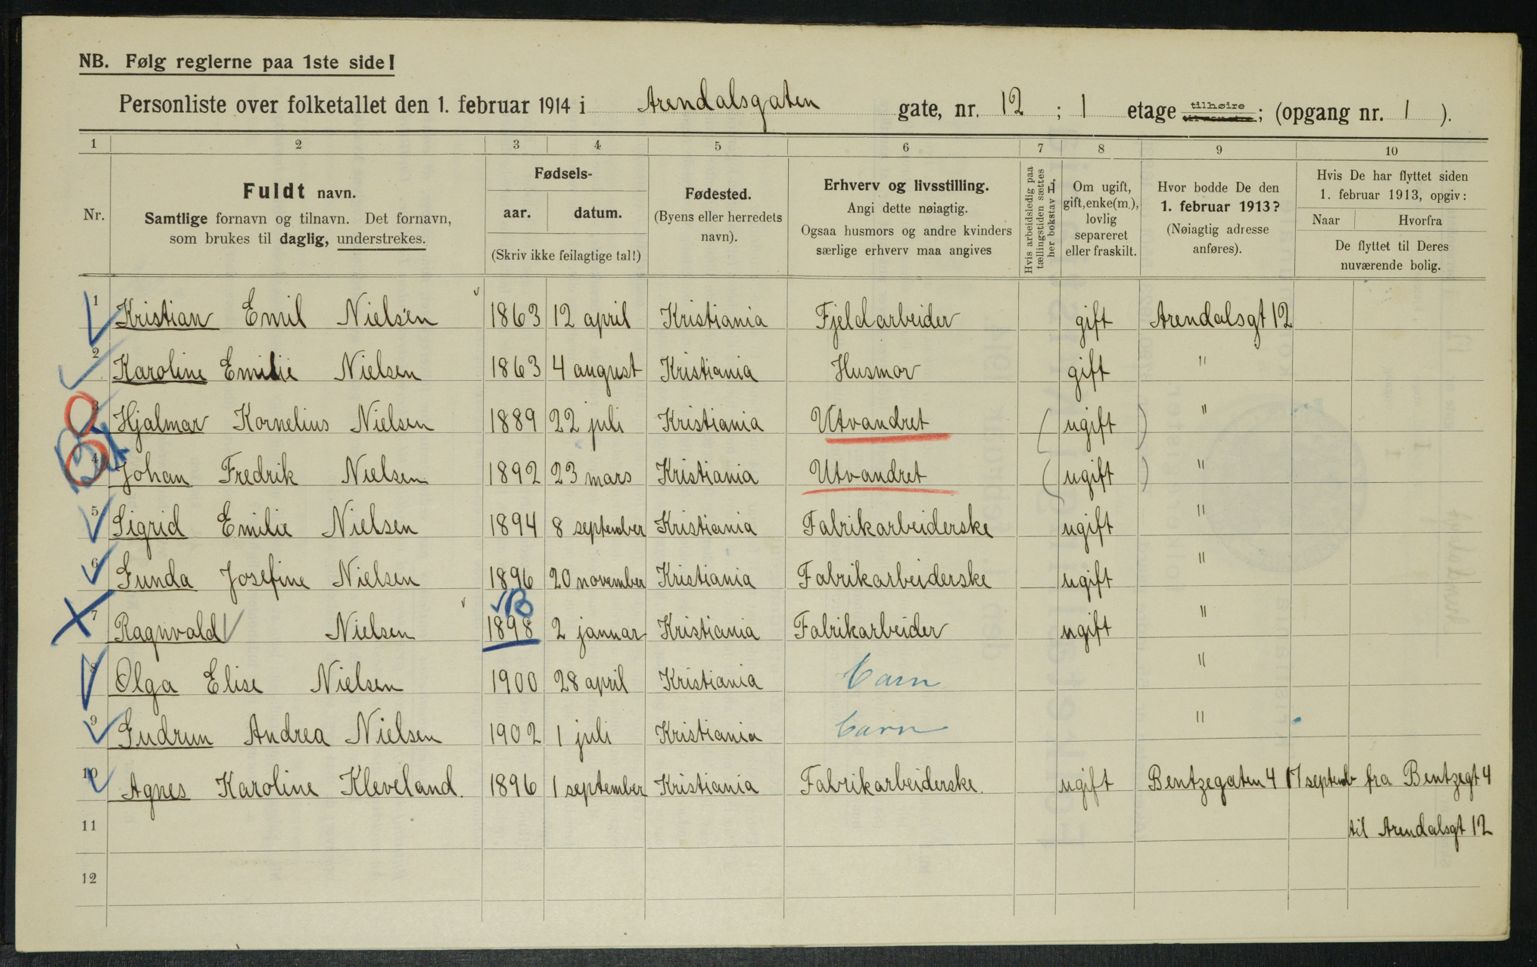 NB. Følg reglerne paa 1ste side!
Personliste over folketallet den 1. februar 1914 i Arendalsgaten gate, nr. 12 ; 1 etage tilhøire ; (opgang nr. 1 ).
1 2 3 4 5 6 7 8 9 10
Nr.
Fuldt navn.
Samtlige fornavn og tilnavn. Det fornavn,
som brukes til daglig, understrekes.
Fødsels-
aar. datum.
(Skriv ikke feilagtige tal!)
Fødested.
(Byens eller herredets
navn).
Erhverv og livsstilling.
Angi dette nøiagtig.
Ogsaa husmors og andre kvinders
særlige erhverv maa angives
Hvis arbeidsledig paa
tællingstiden sættes
her bokstav L.
Om ugift,
gift, enke(m.),
lovlig
separeret
eller fraskilt.
Hvor bodde De den
1. februar 1913?
(Nøiagtig adresse
anføres).
Hvis De har flyttet siden
1. februar 1913, opgiv:
Naar Hvorfra
De flyttet til Deres
nuværende bolig.
1 Kristian Emil Nielsen 1863 12 april Kristiania Fjeldarbeider gift Arendalsgt 12
2 Karoline Emilie Nielsen 1863 4 august Kristiania Husmor gift "
3 Hjalmar Kornelius Nielsen 1889 22 juli Kristiania Utvandret (ugift) "
4 Johan Fredrik Nielsen 1892 23 mars Kristiania Utvandret (ugift) "
5 Sigrid Emilie Nielsen 1894 8 september Kristiania Fabrikarbeiderske ugift "
6 Gunda Josefine Nielsen 1896 20 november Kristiania Fabrikarbeiderske ugift "
B
7 Ragnvald Nielsen 1898 2 januar Kristiania Fabrikarbeider ugift "
8 Olga Elise Nielsen 1900 28 april Kristiania Barn "
9 Gudrun Andrea Nielsen 1902 1 juli Kristiania Barn "
10 Agnes Karoline Kleveland. 1896 1 september Kristiania Fabrikarbeiderske. ugift Bentzegaten 4 17 septemb fra Bentzegt 4
11 til Arendalsgt 12
12